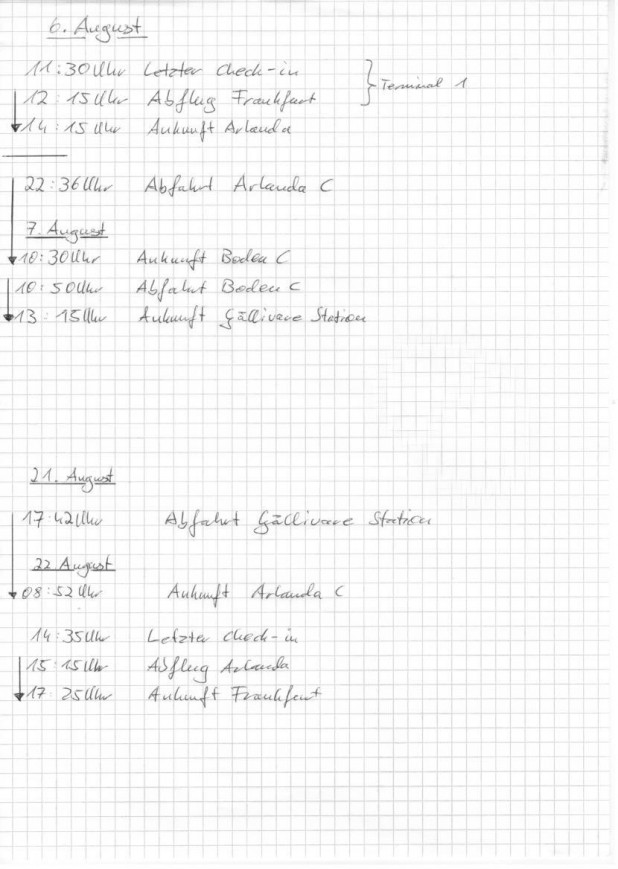 6. August
11:30 Uhr Letzter Check-in
12:15 Uhr Abflug Frankfurt } Terminal 1
14:15 Uhr Ankunft Arlanda
22:36 Uhr Abfahrt Arlanda C
7. August
10:30 Uhr Ankunft Boden C
10:50 Uhr Abfahrt Boden C
13:15 Uhr Ankunft Gällivare Station
21. August
17:42 Uhr Abfahrt Gällivare Station
22 August
08:52 Uhr Ankunft Arlanda C
14:35 Uhr Letzter Check-in
15:15 Uhr Abflug Arlanda
17:25 Uhr Ankunft Frankfurt